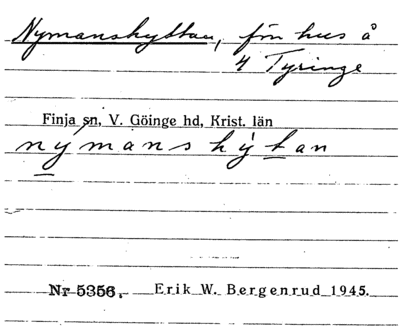 Nymanshyttan, f. n. hus å
4 Tyringe
Finja sn, V. Göinge hd, Krist. län
nýmans hỳtan
Nr 5356. Erik W. Bergenrud 1945.